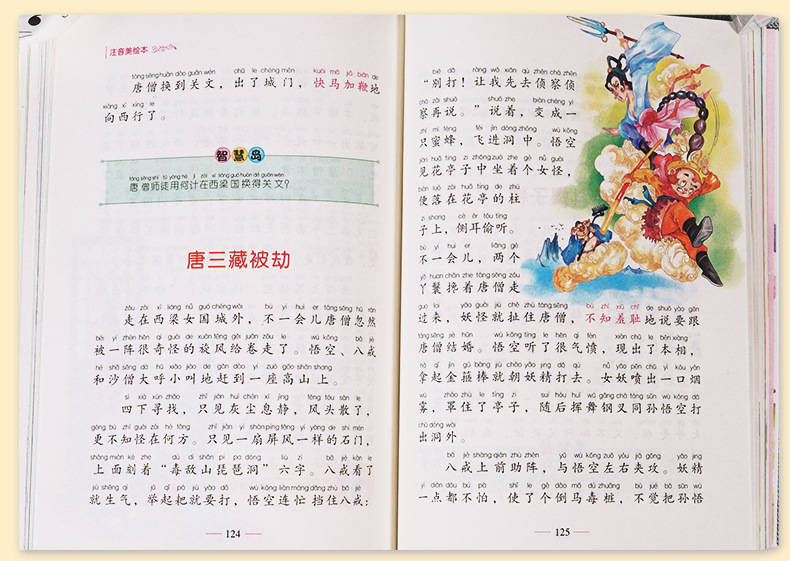 注音美绘本
táng sēng huàn dào guān wén chū le chéng mén kuài mǎ jiā biān de
唐僧换到关文，出了城门，快马加鞭地
xiàng xī xíng le
向西行了。
智慧岛
táng sēng shī tú yòng hé jì zài xī liáng guó huàn dé guān wén
唐僧师徒用何计在西梁国换得关文？
唐三藏被劫
zǒu zài xī liáng nǚ guó chéng wài bù yí huì er táng sēng hū rán
走在西梁女国城外，不一会儿唐僧忽然
bèi yí zhèn hěn qí guài de xuàn fēng gěi juǎn zǒu le wù kōng bā jiè
被一阵很奇怪的旋风给卷走了。悟空、八戒
hé shā sēng dà hū xiǎo jiào de gǎn dào yí zuò gāo shān shàng
和沙僧大呼小叫地赶到一座高山上。
sì xià xún zhǎo zhǐ jiàn huī chén xī jìng fēng tóu sàn le
四下寻找，只见灰尘息静，风头散了，
gèng bù zhī guài zài hé fāng zhǐ jiàn yí shàn píng fēng yí yàng de shí mén
更不知怪在何方。只见一扇屏风一样的石门，
shàng miàn kè zhe dú dí shān pí pa dòng liù zì bā jiè kàn le
上面刻着“毒敌山琵琶洞”六字。八戒看了
jiù shēng qì jǔ qǐ pá jiù yào dǎ wù kōng lián máng dǎng zhù bā jiè
就生气，举起耙就要打，悟空连忙挡住八戒：
124
bié dǎ ràng wǒ xiān qù zhēn chá zhēn
“别打！让我先去侦察侦
chá zài shuō shuō zhe biàn chéng yì
察再说。”说着，变成一
zhī mì fēng fēi jìn dòng zhōng wù kōng
只蜜蜂，飞进洞中。悟空
jiàn huā tíng zi zhōng zuò zhe gè nǚ guài
见花亭子中坐着个女怪，
biàn luò zài huā tíng de zhù
便落在花亭的柱
zi shang cè ěr tōu tīng
子上，侧耳偷听。
bù yí huì er liǎng gè
不一会儿，两个
yā huan chān zhe táng sēng zǒu
丫鬟搀着唐僧走
guò lai yāo guài jiù chě zhù táng sēng bù zhī xiū chǐ de shuō yào gēn
过来，妖怪就扯住唐僧，不知羞耻地说要跟
táng sēng jié hūn wù kōng tīng le hěn qì fèn xiàn chū le běn xiàng
唐僧结婚。悟空听了很气愤，现出了本相，
ná qǐ jīn gū bàng jiù cháo yāo jing dǎ qù nǚ yāo pēn chū yì kǒu yān
拿起金箍棒就朝妖精打去。女妖喷出一口烟
wù zhào zhù le tíng zi suí hòu huī wǔ gāng chā tóng sūn wù kōng dǎ
雾，罩住了亭子，随后挥舞钢叉同孙悟空打
chū dòng wài
出洞外。
bā jiè shàng qián zhù zhèn yǔ wù kōng zuǒ yòu jiā gōng yāo jing
八戒上前助阵，与悟空左右夹攻。妖精
yì diǎn dōu bú pà shǐ le gè dào mǎ dú zhuāng bù jué bǎ sūn wù
一点都不怕，使了个倒马毒桩，不觉把孙悟
125